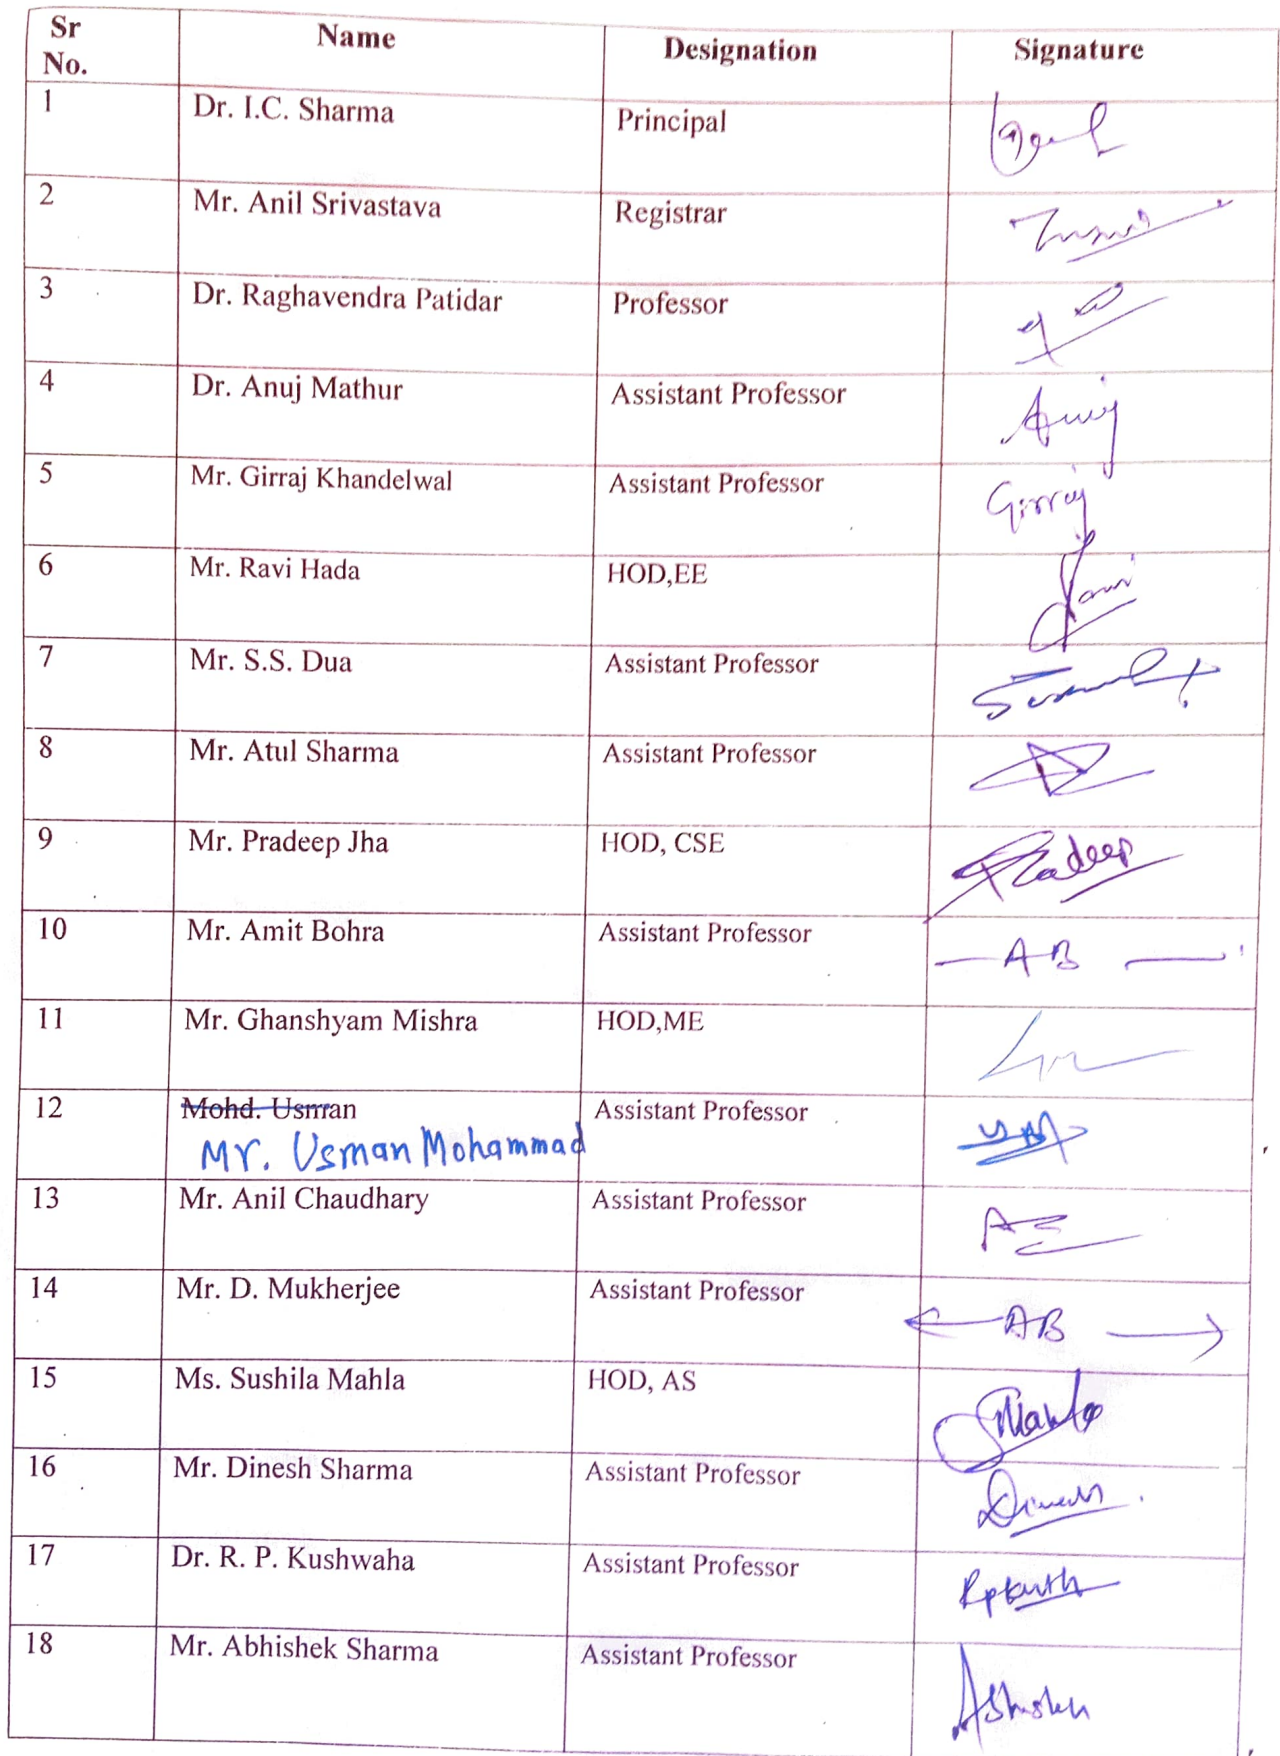 Sr No. Name Designation Signature
1 Dr. I.C. Sharma Principal
2 Mr. Anil Srivastava Registrar
3 Dr. Raghavendra Patidar Professor
4 Dr. Anuj Mathur Assistant Professor Anuj
5 Mr. Girraj Khandelwal Assistant Professor Girraj
6 Mr. Ravi Hada HOD,EE Ravi
7 Mr. S.S. Dua Assistant Professor
8 Mr. Atul Sharma Assistant Professor
9 Mr. Pradeep Jha HOD, CSE Pradeep
10 Mr. Amit Bohra Assistant Professor — AB —
11 Mr. Ghanshyam Mishra HOD,ME
12 Mohd. Usman Assistant Professor
Mr. Usman Mohammad
13 Mr. Anil Chaudhary Assistant Professor
14 Mr. D. Mukherjee Assistant Professor ← AB →
15 Ms. Sushila Mahla HOD, AS
16 Mr. Dinesh Sharma Assistant Professor Dinesh
17 Dr. R. P. Kushwaha Assistant Professor
18 Mr. Abhishek Sharma Assistant Professor